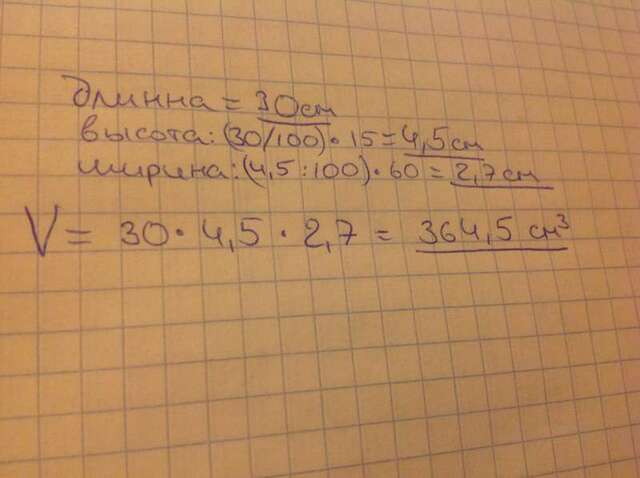 длинна = 30см
высота: (30/100)·15=4,5см
ширина: (4,5:100)·60 = 2,7см
V = 30·4,5·2,7 = 364,5 см³